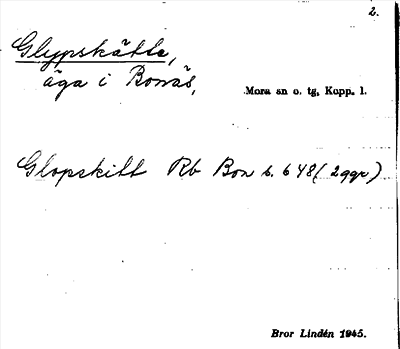 2.
Glypskätte,
äga i Bonäs,
Mora sn o. tg, Kopp. l.
Glopskitt Rb Bon s. 648 (2ggr)
Bror Lindén 1945.